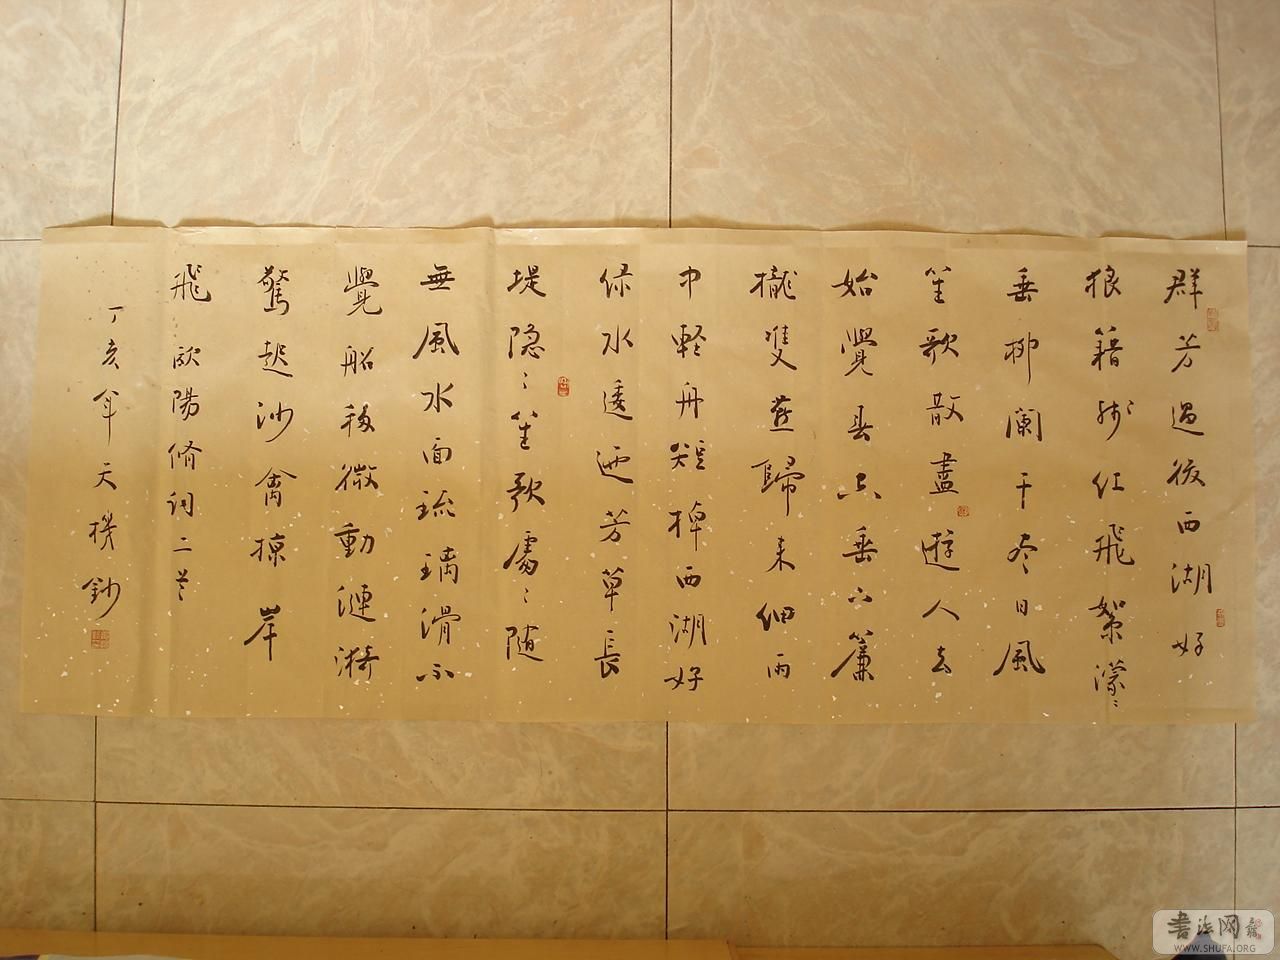 群芳過後西湖好
狼籍殘紅飛絮濛〻
垂柳闌干尽日風
笙歌散盡遊人去
始覺春空垂下簾
櫳雙燕歸来細雨
中輕舟短棹西湖好
绿水逶迤芳草長
堤隐〻笙歌處〻随
無風水面琉璃滑不
覺船移微動漣漪
驚起沙禽掠岸
飛欧陽脩詞二首
丁亥年天機鈔
書法网
WWW.SHUFA.ORG